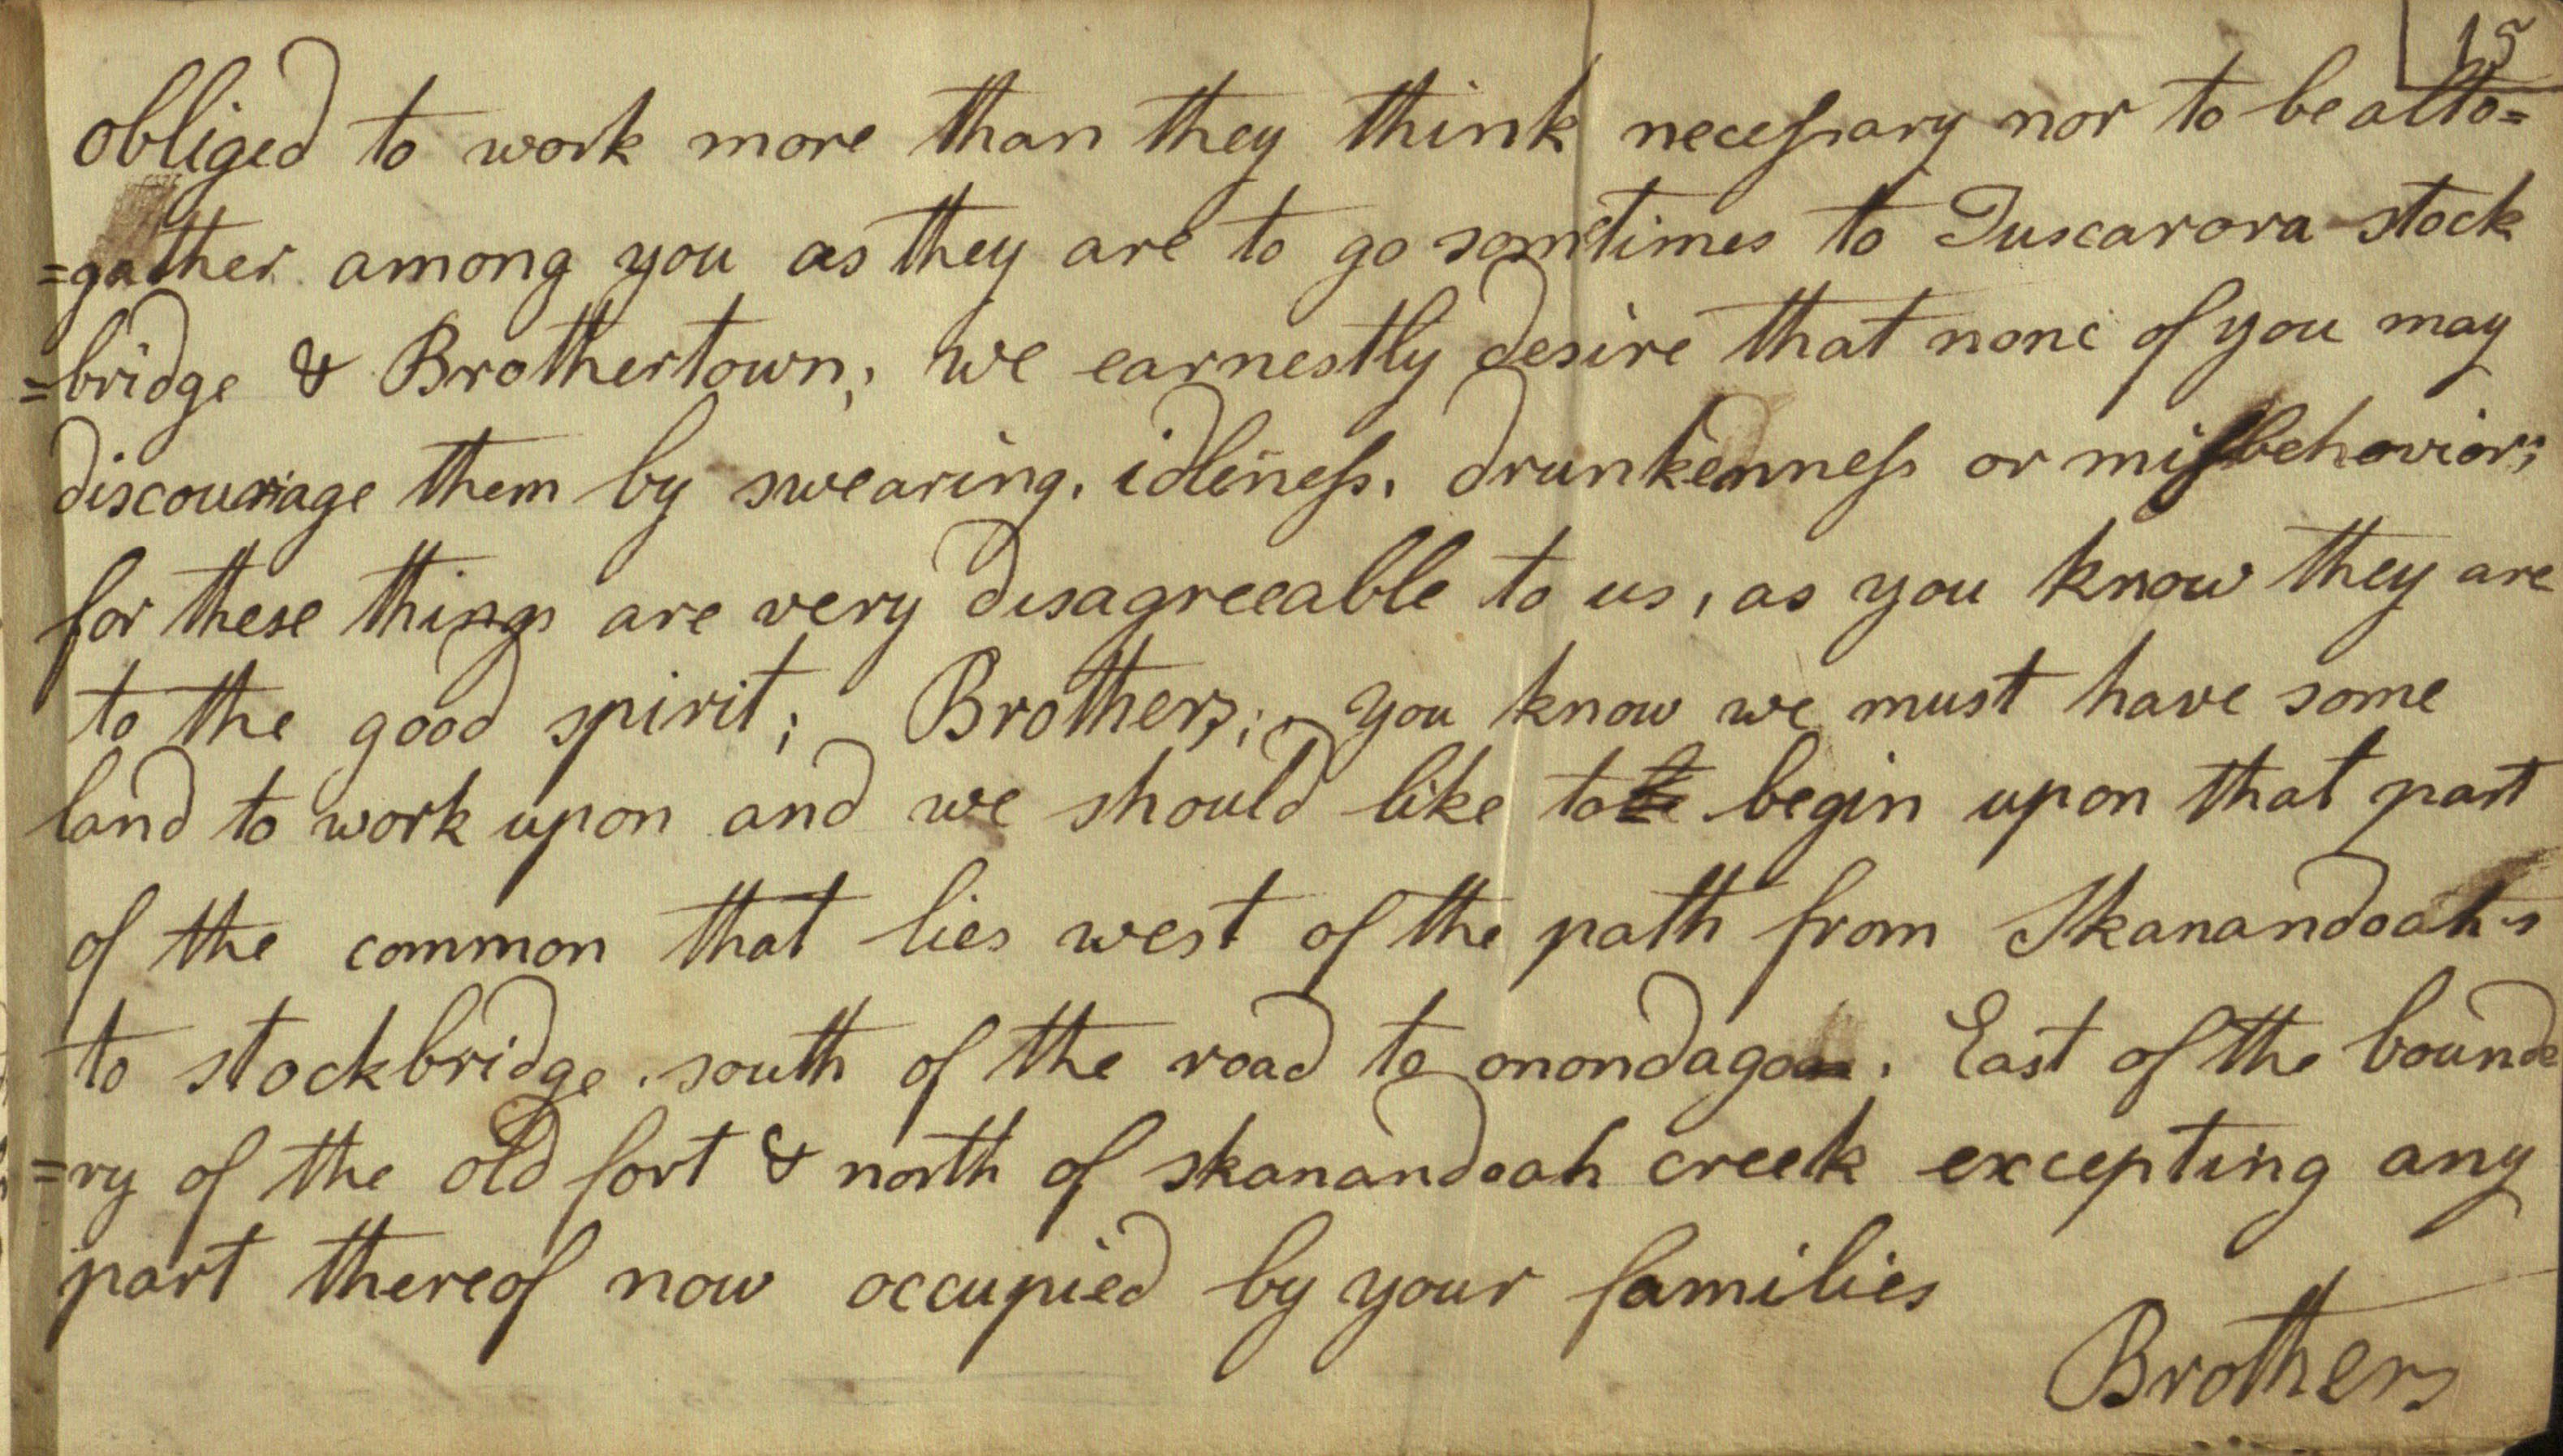 15
obliged to work more than they think necessary nor to be alto=
=gather among you as they are to go sometimes to Tuscarora stock
=bridge & Brothertown; we earnestly desire that none of you may
discourage them by swearing, idleness, drunkenness or misbehavior;
for these things are very disagreeable to us, as you know they are
to the good spirit; Brothers; you know we must have some
land to work upon and we should like to begin upon that part
of the common that lies west of the path from Skanandoah's
to stockbridge, south of the road to onondago. East of the bounde
=ry of the old fort & north of skanandoah creek excepting any
part thereof now occupied by your families
Brothers